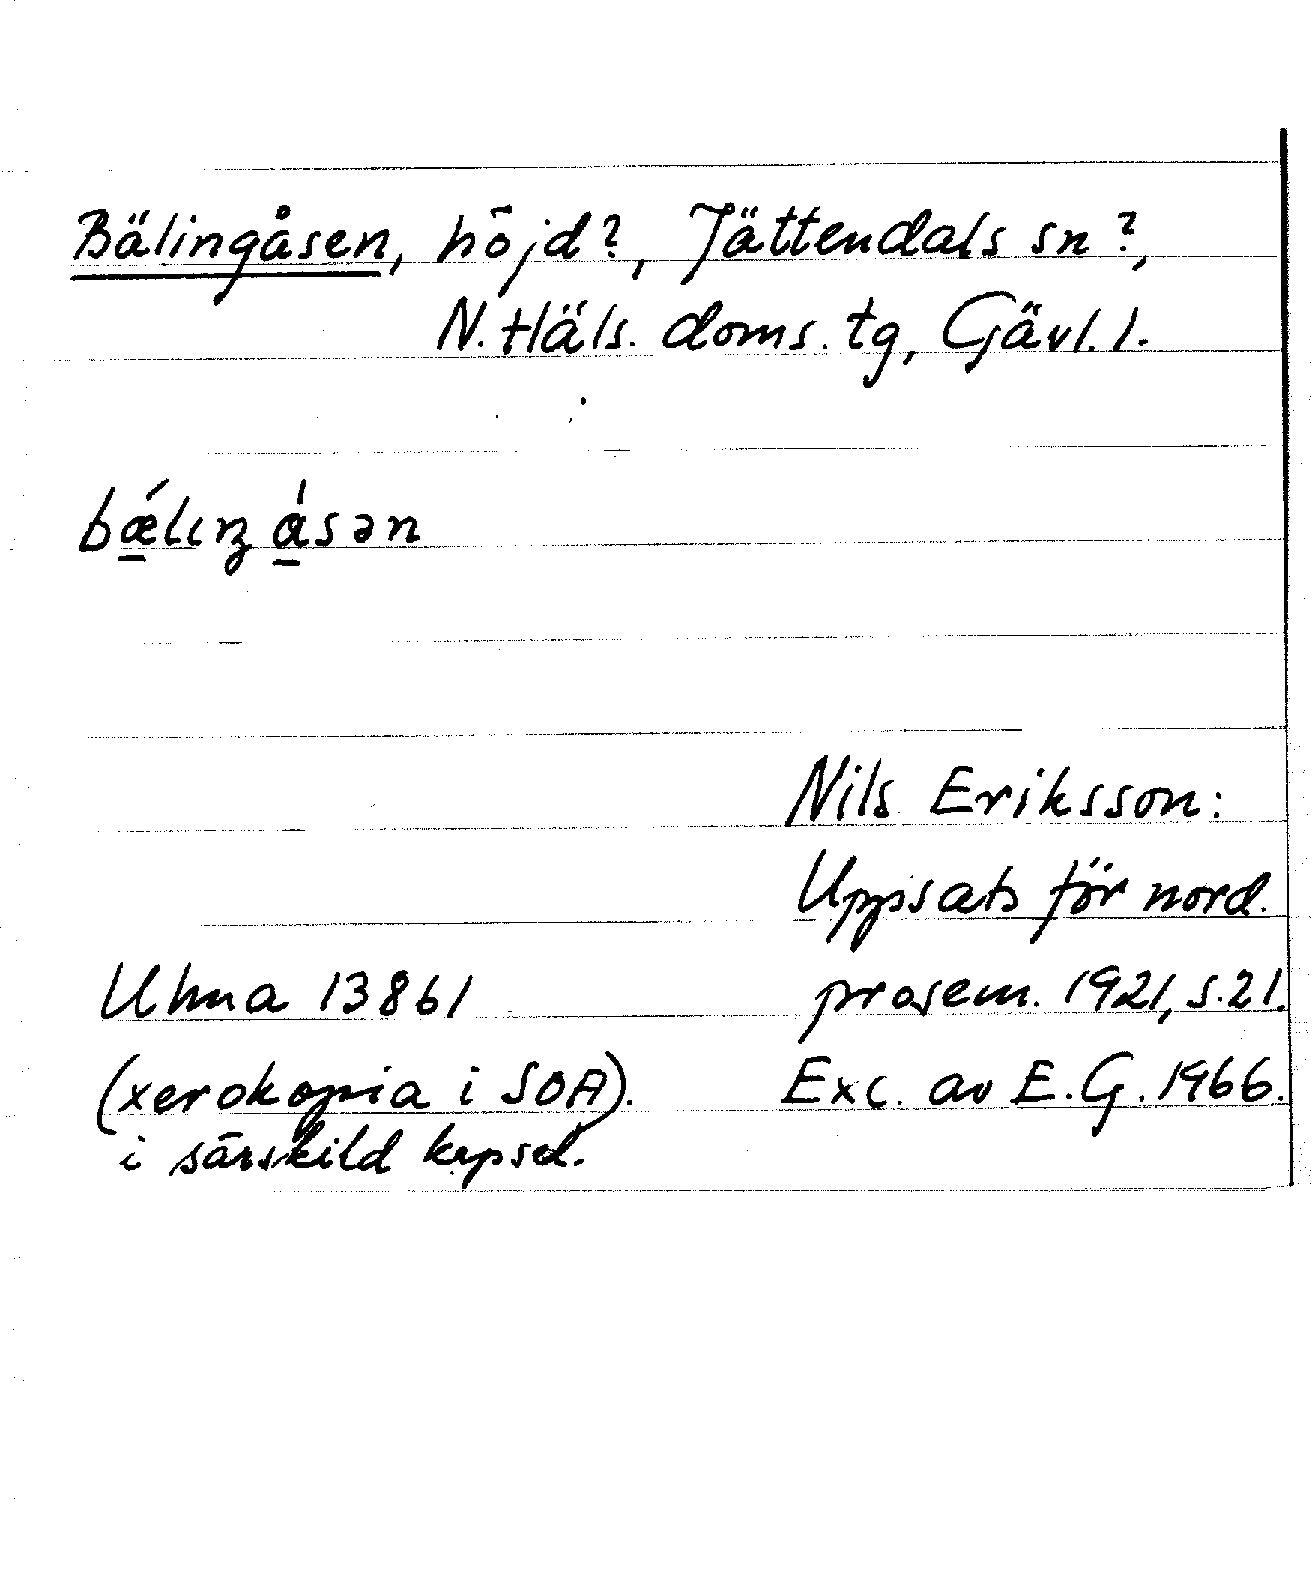 Bälingåsen, höjd?, Jättendals sn?,
N. Häls. doms. tg, Gävl. l.
bǽlıŋ ásən
Nils Eriksson:
Uppsats för nord.
prosem. 1921, s. 21.
Exc. av E. G. 1966.
Ulma 13861
(xerokopia i SOA).
i särskild kapsel.